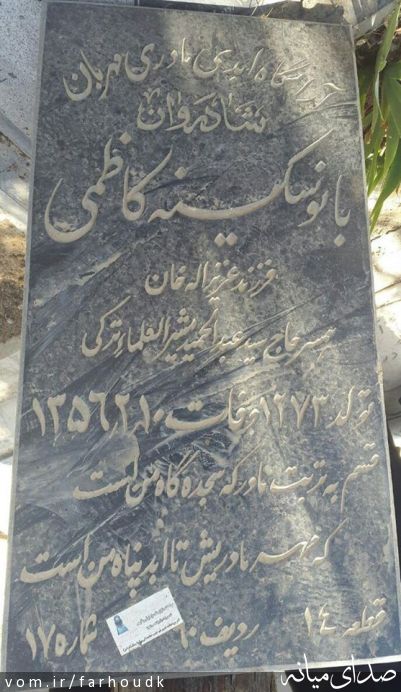 آرامگاه ابدی مادری مهربان
شادروان
بانو سکینه کاظمی
فرزند عزیزاله خان
همسر حاج سید عبدالحمید بشیرالعلماء ترکی
تولد ۱۲۷۳ وفات ۱۳۵۶٫۲٫۱۰
قسم به تربت مادر که سجده گاه من است
که مهر مادریش تا ابد پناه من است
قطعه ۱۴ ردیف ۶۰ شماره ۱۷
vom.ir/farhoudk
صدای میانه